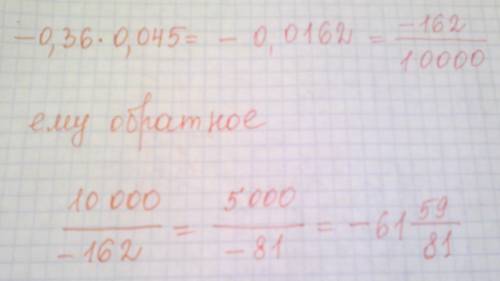 -0,36·0,045= - 0,0162 = -162/10000
ему обратное
10 000/-162 = 5000/-81 = -61 59/81